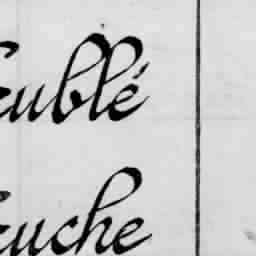 rublé
ruche